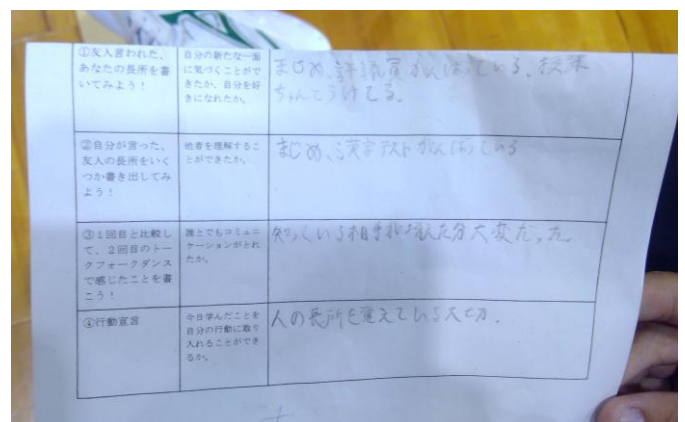 ①友人言われた、
あなたの長所を書
いてみよう！
自分の新たな一面
に気づくことがで
きたか、自分を好
きになれたか。
まじめ、評議員がんばっている。授業
ちゃんとうけてる。
②自分が言った、
友人の長所をいく
つか書き出してみ
よう！
他者を理解するこ
とができたか。
まじめ、漢字テストがんばっている
③１回目と比較し
て、２回目のトー
クフォークダンス
で感じたことを書
こう！
誰とでもコミュニ
ケーションがとれ
たか。
知っている相手が増えた分大変だった。
④行動宣言
今日学んだことを
自分の行動に取り
入れることができ
るか。
人の長所を覚えている大切。